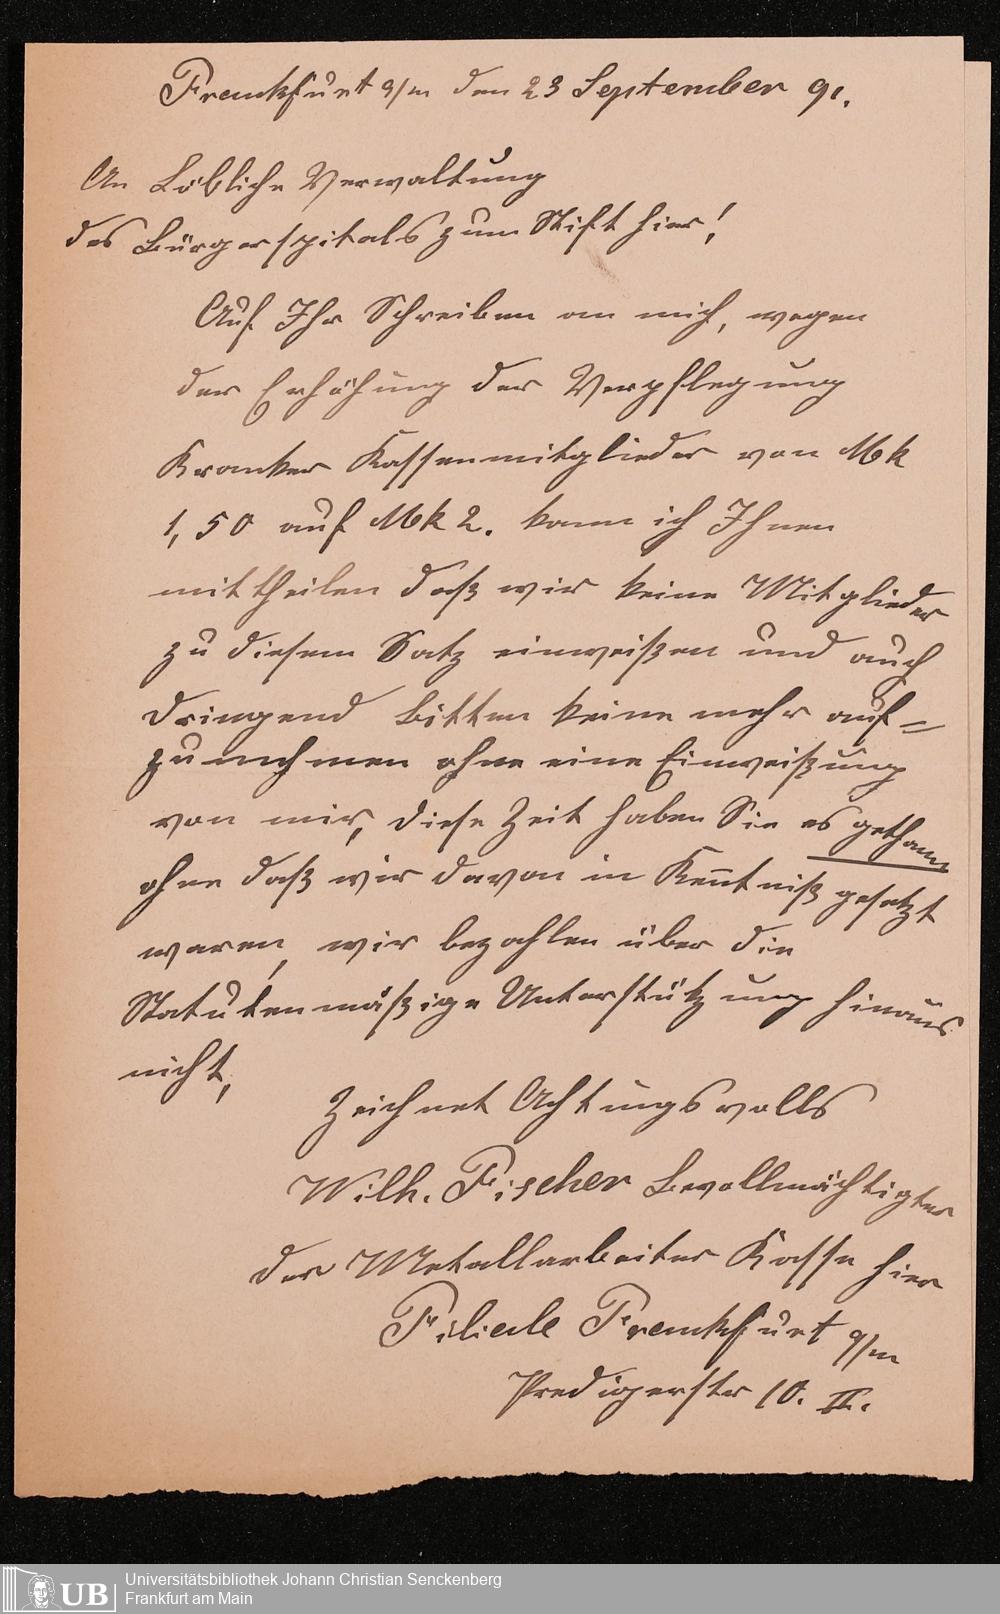 Frankfurt a/m den 23 September 91.
An Löbliche Verwaltung
des Bürgerspitals zum Stift hier!
Auf Ihr Schreiben an mich, wegen
der Erhöhung der Verpflegung
Kranker Kassenmitglieder von Mk
1,50 auf Mk 2. kann ich Ihnen
mittheilen daß wir keine Mitglieder
zu diesem Satz einweißen und auch
dringend bitten keine mehr auf=
zunehmen ohne eine Einweißung
von mir, diese Zeit haben Sie es gethann
ohne daß wir davon in Kentniß gesetzt
waren, wir bezahlen über die
Statutenmäßige Unterstützung hinaus
nicht,
Zeichnet Achtungsvolls
Wilh. Fischer Bevollmächtigter
der Metallarbeiter Kasse hier
Filiale Frankfurt a/m
Predigerstr 10. II.
UB
Universitätsbibliothek Johann Christian Senckenberg
Frankfurt am Main